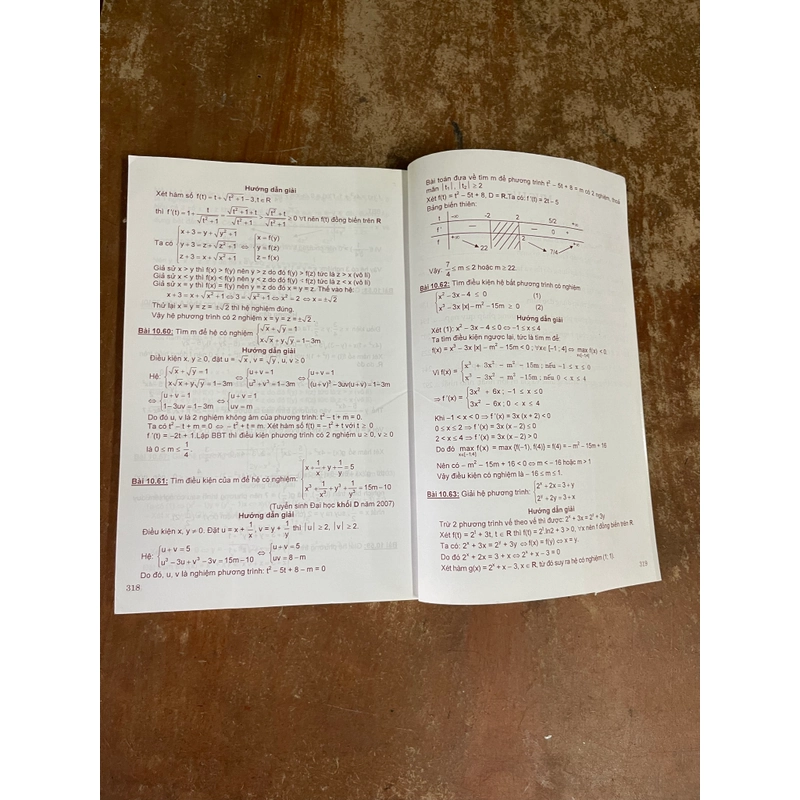 Hướng dẫn giải
Xét hàm số f(t) = t + √(t² + 1) − 3, t ∈ R
thì f'(t) = 1 + 1/√(t² + 1) = (√(t² + 1) + t)/√(t² + 1) √(t² + 1)/√(t² + 1) ≥ 0 ∀t nên f(t) đồng biến trên R
Ta có { x + 3 = y + √(y² + 1) ; y + 3 = z + √(z² + 1) ; z + 3 = x + √(x² + 1) ⇔ { x = f(y) ; y = f(z) ; z = f(x)
Giả sử x > y thì f(x) > f(y) nên y > z do đó f(y) > f(z) tức là z > x (vô lí)
Giả sử x < y thì f(x) < f(y) nên y < z do đó f(y) < f(z) tức là z < x (vô lí)
Giả sử x = y thì f(x) = f(y) nên y = z do đó x = y = z. Thế vào hệ:
x + 3 = x + √(x² + 1) ⇔ 3 = √(x² + 1) ⇔ x² = 2 ⇔ x = ±√2
Thử lại x = y = z = ±√2 thì hệ nghiệm đúng.
Vậy hệ phương trình có 2 nghiệm x = y = z = ±√2.
Bài 10.60: Tìm m để hệ có nghiệm { √x + √y = 1 ; x√x + y√y = 1 − 3m
Hướng dẫn giải
Điều kiện x, y ≥ 0, đặt u = √x, v = √y, u, v ≥ 0
Hệ: { √x + √y = 1 ; x√x + y√y = 1 − 3m ⇔ { u + v = 1 ; u³ + v³ = 1 − 3m ⇔ { u + v = 1 ; (u + v)³ − 3uv(u + v) = 1 − 3m
⇔ { u + v = 1 ; 1 − 3uv = 1 − 3m ⇔ { u + v = 1 ; uv = m
Do đó u, v là 2 nghiệm không âm của phương trình: t² − t + m = 0.
Ta có t² − t + m = 0 ⇔ −t² + t = m. Xét hàm số f(t) = −t² + t với t ≥ 0
f'(t) = −2t + 1.Lập BBT thì điều kiện phương trình có 2 nghiệm u ≥ 0, v ≥ 0
là 0 ≤ m ≤ 1/4.
Bài 10.61: Tìm điều kiện của m để hệ có nghiệm: { x + 1/x + y + 1/y = 5 ; x³ + 1/x³ + y³ + 1/y³ = 15m − 10
(Tuyển sinh Đại học khối D năm 2007)
Hướng dẫn giải
Điều kiện x, y ≠ 0. Đặt u = x + 1/x, v = y + 1/y thì |u| ≥ 2, |v| ≥ 2.
Hệ: { u + v = 5 ; u³ − 3u + v³ − 3v = 15m − 10 ⇔ { u + v = 5 ; uv = 8 − m
Do đó, u, v là nghiệm phương trình: t² − 5t + 8 − m = 0
318
Bài toán đưa về tìm m để phương trình t² − 5t + 8 = m có 2 nghiệm, thoả
mãn |t₁|, |t₂| ≥ 2
Xét f(t) = t² − 5t + 8, D = R.Ta có: f'(t) = 2t − 5
Bảng biến thiên:
t −∞ −2 2 5/2 +∞
f' − − 0 +
f +∞ 22 2 7/4 +∞
Vậy: 7/4 ≤ m ≤ 2 hoặc m ≥ 22.
Bài 10.62: Tìm điều kiện hệ bất phương trình có nghiệm
{ x² − 3x − 4 ≤ 0 (1)
x³ − 3x |x| − m² − 15m ≥ 0 (2)
Hướng dẫn giải
Xét (1): x² − 3x − 4 ≤ 0 ⇔ −1 ≤ x ≤ 4
Ta tìm điều kiện ngược lại, tức là tìm m để:
f(x) = x³ − 3x |x| − m² − 15m < 0 ; ∀x ∈ [−1 ; 4] ⇔ max f(x) < 0
x∈[−1;4]
Vì f(x) = { x³ + 3x² − m² − 15m ; nếu −1 ≤ x ≤ 0
x³ − 3x² − m² − 15m ; nếu 0 < x ≤ 4
⇒ f'(x) = { 3x² + 6x ; −1 ≤ x ≤ 0
3x² − 6x ; 0 < x ≤ 4
Khi −1 < x < 0 ⇒ f'(x) = 3x (x + 2) < 0
0 ≤ x ≤ 2 ⇒ f'(x) = 3x (x − 2) ≤ 0
2 < x ≤ 4 ⇒ f'(x) = 3x (x − 2) > 0
Do đó max f(x) = max {f(−1), f(4)} = f(4) = −m² − 15m + 16
x∈[−1;4]
Nên có −m² − 15m + 16 < 0 ⇔ m < −16 hoặc m > 1
Vậy điều kiện có nghiệm là −16 ≤ m ≤ 1.
Bài 10.63: Giải hệ phương trình: { 2ˣ + 2x = 3 + y ; 2ʸ + 2y = 3 + x
Hướng dẫn giải
Trừ 2 phương trình vế theo vế thì được: 2ˣ + 3x = 2ʸ + 3y
Xét f(t) = 2ᵗ + 3t, t ∈ R thì f'(t) = 2ᵗ.ln2 + 3 > 0, ∀x nên f đồng biến trên R
Ta có: 2ˣ + 3x = 2ʸ + 3y ⇔ f(x) = f(y) ⇔ x = y.
Do đó 2ˣ + 2x = 3 + x ⇔ 2ˣ + x − 3 = 0
Xét hàm g(x) = 2ˣ + x − 3, x ∈ R, từ đó suy ra hệ có nghiệm (1; 1).
319